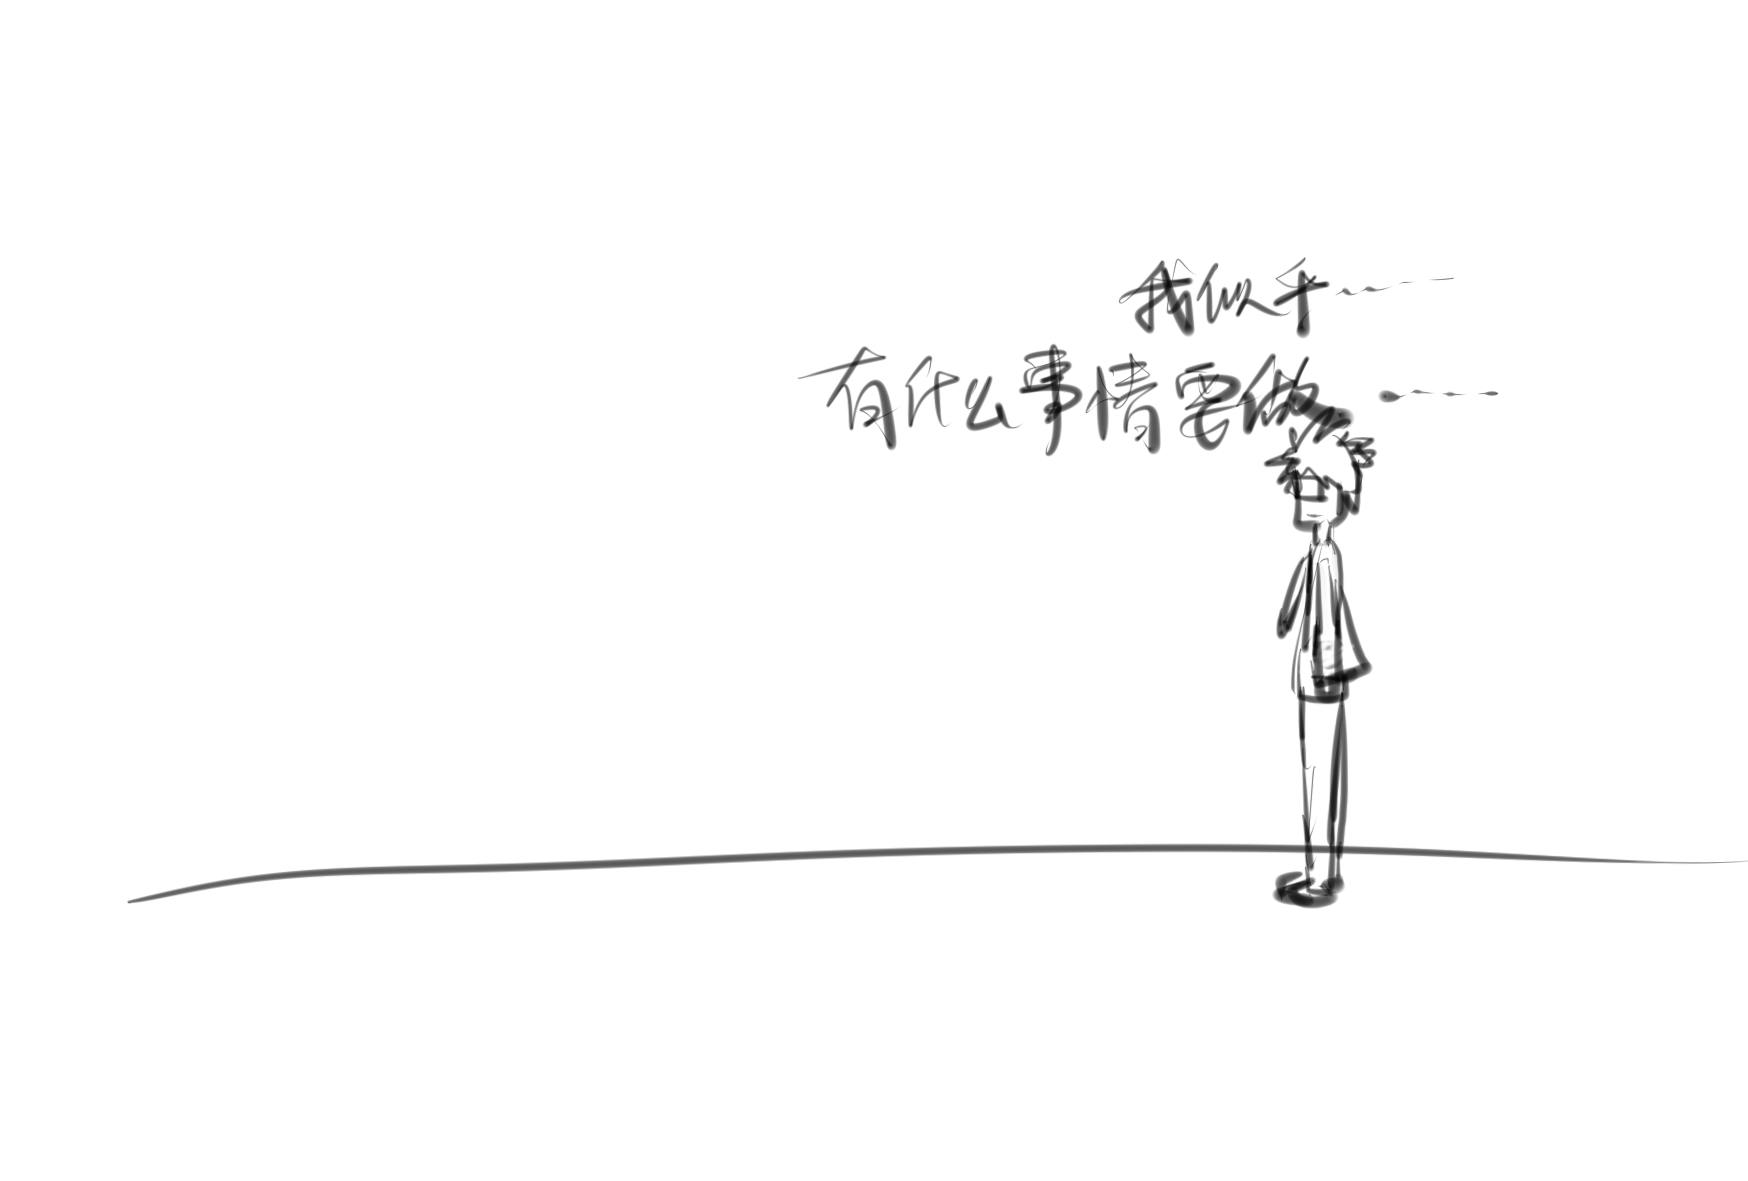 我似乎……
有什么事情要做……